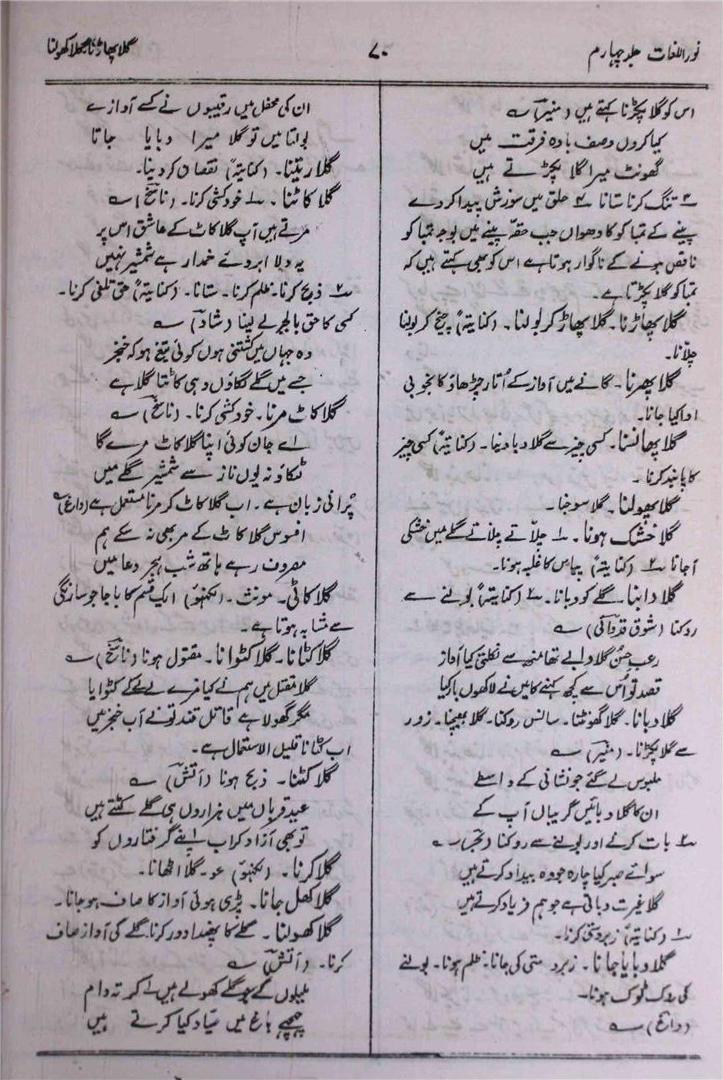 نور اللغات جلد چہارم
۷۰
گلا پھاڑنا گلا کھولنا
اس کو گلا پکڑنا کہتے ہیں (منیر) ؎
کیا کروں وصف بادہ فرقت میں
گھونٹ میرا گلا پکڑتے ہیں
۳؎ تنگ کرنا ستانا ۴؎ حلق میں سوزش پیدا کر دے
پینے کے تمباکو کا دھواں جب حقہ پینے میں بوجہ تمباکو
ناقص ہونے کے ناگوار ہوتا ہے اس کو بھی کہتے ہیں کہ
تمباکو گلا پکڑتا ہے۔
گلا پھاڑنا۔ گلا پھاڑ کر بولنا۔ (کنایتہً) چیخ کر بولنا
چلانا۔
گلا پھرنا۔ گانے میں آواز کے اُتار چڑھاؤ کا بخوبی
ادا کیا جانا۔
گلا پھانسنا۔ کسی چیز سے گلا دبا دینا۔ (کنایتہً) کسی چیز
کا پابند کرنا۔
گلا پھولنا۔ گلا سوجنا۔
گلا خشک ہونا۔ ۱؎ چلاتے چلاتے گلے میں خشکی
آجانا ۲؎ (کنایتہً) پیاس کا غلبہ ہونا۔
گلا دابنا۔ گلے کو دبانا۔ ۲؎ (کنایتہً) بولنے سے
روکنا (شوق قدوائی) ؎
رعب حسن گلا دابے تھا منھ سے نکلتی کیا آواز
قصد تو اُس سے کچھ کہنے کا میں نے لاکھوں بار کیا
گلا دبانا۔ گلا گھونٹنا۔ سانس روکنا۔ گلا بھینچنا۔ زور
سے گلا پکڑنا۔ (منیر) ؎
ملبوس لے گئے جو نشانی کے واسطے
ان کا گلا دبائیں گریباں آپ کے
۲؎ بات کرنے اور بولنے سے روکنا ؎
سوائے صبر کیا چارہ جو وہ بیداد کرتے ہیں
گلا غیرت دباتی ہے جو ہم فریاد کرتے ہیں
(کنایتہً) زبردستی کرنا۔
گلا دبایا جانا۔ زبردستی کی جانا۔ ظلم ہونا۔ بولنے
کی روک ٹوک ہونا۔
(داغ) ؎
ان کی محفل میں رقیبوں نے کسے آوازے
بولتا میں تو گلا میرا دبایا جاتا
گلا ریتنا۔ (کنایتہً) نقصان کر دینا۔
گلا کاٹنا۔ ۱؎ خودکشی کرنا۔ (ناسخ) ؎
مرتے ہیں آپ گلا کاٹ کے عاشق اس پر
یہ دلا ابروئے خمدار ہے شمشیر نہیں
۲؎ ذبح کرنا۔ ظلم کرنا۔ ستانا۔ (کنایتہً) حق تلفی کرنا۔
کسی کا حق بالجبر لے لینا (شاد) ؎
وہ جہاں میں کشتنی ہوں کوئی تیغ ہو کہ خنجر
جسے میں گلے لگاؤں وہی کاٹتا گلا ہے
گلا کاٹ مرنا۔ خودکشی کرنا۔ (ناسخ) ؎
اے جان کوئی اپنا گلا کاٹ مرے گا
لٹکاؤ نہ یوں ناز سے شمشیر گلے میں
پرانی زبان ہے۔ اب گلا کاٹ کر مرنا مستعمل ہے (داغ)
افسوس گلا کاٹ کے مر بھی نہ سکے ہم
مصروف رہے ہاتھ شب ہجر دعا میں
گلا کاٹی۔ مونث۔ (لکھنؤ) ایک قسم کا باجا جو سارنگی
سے مشابہ ہوتا ہے۔
گلا کٹانا۔ گلا کٹوانا۔ مقتول ہونا (ناسخ) ؎
گلا مقتل میں ہم نے کیا مزے لے لے کے کٹوایا
مگر گھولا ہے قاتل قند تو نے آب خنجر میں
اب کٹانا قلیل الاستعمال ہے۔
گلا کٹنا۔ ذبح ہونا (آتش) ؎
عید قرباں میں ہزاروں ہی گلے کٹتے ہیں
تو بھی آزاد کر اب اپنے گرفتاروں کو
گلا کرنا۔ (لکھنؤ) عو۔ گلا اٹھانا۔
گلا کھل جانا۔ پڑی ہوئی آواز کا صاف ہو جانا۔
گلا کھولنا۔ گلے کا پھندا دور کرنا۔ گلے کی آواز صاف
کرنا۔ (آتش) ؎
بلبلوں کے جو گلے کھولے ہیں اے کر تہ دام
چہچہے باغ میں صیاد کیا کرتے ہیں